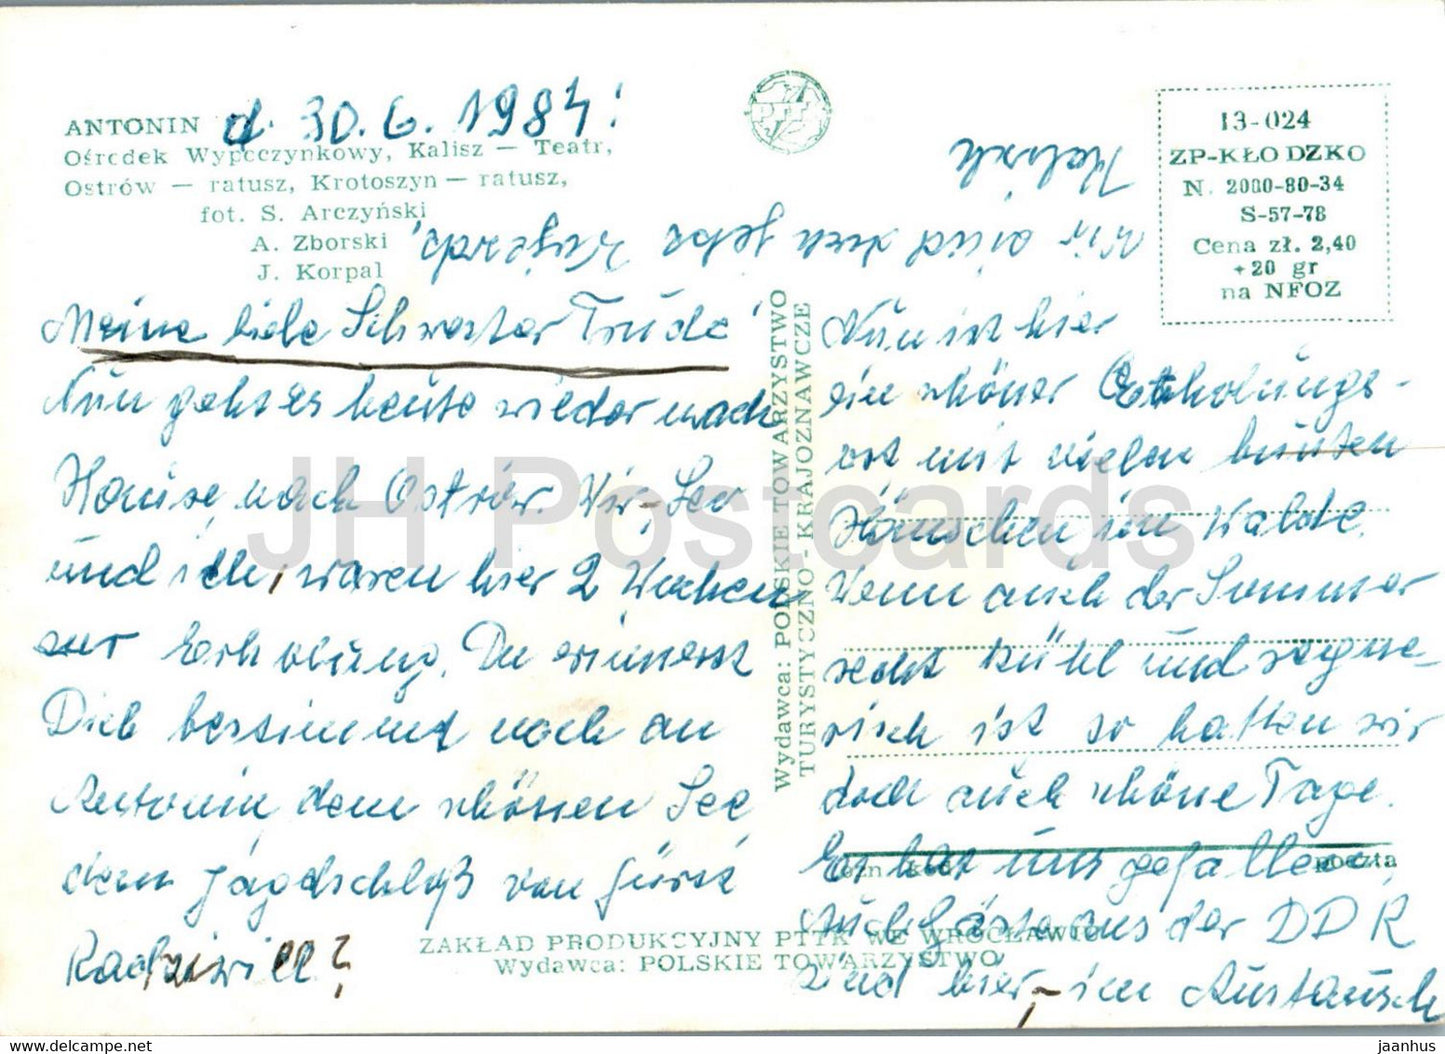 ANTONIN d. 30. 6. 1984!
Ośrodek Wypoczynkowy, Kalisz — Teatr,
Ostrów — ratusz, Krotoszyn — ratusz,
fot. S. Arczyński
A. Zborski
J. Korpal
PTTK
13-024
ZP-KŁODZKO
N. 2000-80-34
S-57-78
Cena zł. 2,40
+ 20 gr
na NFOZ
Wir sind
Meine liebe Schwester Trude!
Nun geht es heute wieder nach
Hause, nach Ostrów. Wir, - Leo
und ich, waren hier 2 Wochen
zur Erholung. Du erinnerst
Dich bestimmt noch an
Antonin, dem schönen See
dem Jagdschloß von Fürst
Radziwill?
Wydawca: POLSKIE TOWARZYSTWO
TURYSTYCZNO - KRAJOZNAWCZE
Nun ist hier
ein schöner Erholungs-
ort mit vielen bunten
Häuschen, im Walde.
Wenn auch der Sommer
recht kühl und regne-
risch ist so hatten wir
doch auch schöne Tage.
Es hat uns gefallen.
Auch Gäste aus der DDR
sind hier, - im Austausch
poczta
ZAKŁAD PRODUKCYJNY PTTK WE WROCŁAWIU
Wydawca: POLSKIE TOWARZYSTWO
JH Postcards
https://www.ebid.net
jaanhus